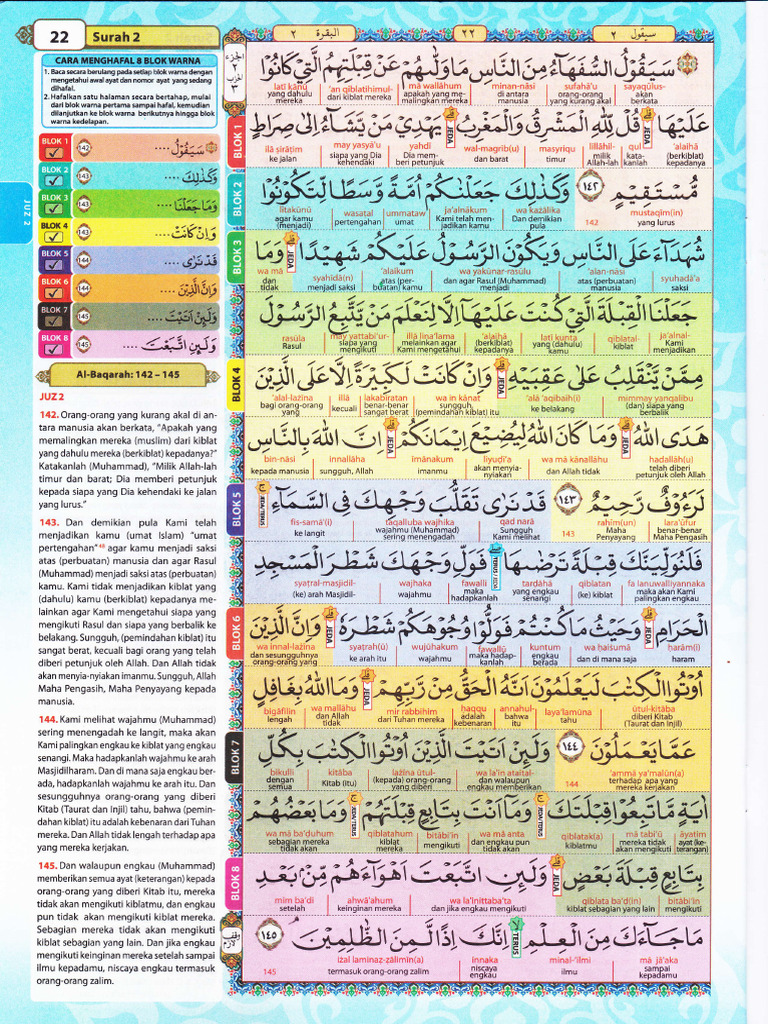 22
Surah 2
البقرة ٢
٢٢
سيقول ٢
CARA MENGHAFAL 8 BLOK WARNA
1. Baca secara berulang pada setiap blok warna dengan
mengetahui awal ayat dan nomor ayat yang sedang
dihafal.
2. Hafalkan satu halaman secara bertahap, mulai
dari blok warna pertama sampai hafal, kemudian
dilanjutkan ke blok warna berikutnya hingga blok
warna kedelapan.
BLOK 1 142 سَيَقُوْلُ ....
BLOK 2 143 وَكَذٰلِكَ ....
BLOK 3 143 وَمَا جَعَلْنَا ....
BLOK 4 143 وَاِنْ كَانَتْ ....
BLOK 5 144 قَدْ نَرٰى ....
BLOK 6 144 وَاِنَّ الَّذِيْنَ ....
BLOK 7 145 وَلَىِٕنْ اَتَيْتَ ....
BLOK 8 145 وَلَىِٕنِ اتَّبَعْتَ ....
Al-Baqarah: 142 – 145
JUZ 2
JUZ 2
142. Orang-orang yang kurang akal di an-
tara manusia akan berkata, “Apakah yang
memalingkan mereka (muslim) dari kiblat
yang dahulu mereka (berkiblat) kepadanya?”
Katakanlah (Muhammad), “Milik Allah-lah
timur dan barat; Dia memberi petunjuk
kepada siapa yang Dia kehendaki ke jalan
yang lurus.”
143. Dan demikian pula Kami telah
menjadikan kamu (umat Islam) “umat
pertengahan”⁴⁸ agar kamu menjadi saksi
atas (perbuatan) manusia dan agar Rasul
(Muhammad) menjadi saksi atas (perbuatan)
kamu. Kami tidak menjadikan kiblat yang
(dahulu) kamu (berkiblat) kepadanya me-
lainkan agar Kami mengetahui siapa yang
mengikuti Rasul dan siapa yang berbalik ke
belakang. Sungguh, (pemindahan kiblat) itu
sangat berat, kecuali bagi orang yang telah
diberi petunjuk oleh Allah. Dan Allah tidak
akan menyia-nyiakan imanmu. Sungguh, Allah
Maha Pengasih, Maha Penyayang kepada
manusia.
144. Kami melihat wajahmu (Muhammad)
sering menengadah ke langit, maka akan
Kami palingkan engkau ke kiblat yang engkau
senangi. Maka hadapkanlah wajahmu ke arah
Masjidilharam. Dan di mana saja engkau ber-
ada, hadapkanlah wajahmu ke arah itu. Dan
sesungguhnya orang-orang yang diberi
Kitab (Taurat dan Injil) tahu, bahwa (pemin-
dahan kiblat) itu adalah kebenaran dari Tuhan
mereka. Dan Allah tidak lengah terhadap apa
yang mereka kerjakan.
145. Dan walaupun engkau (Muhammad)
memberikan semua ayat (keterangan) kepada
orang-orang yang diberi Kitab itu, mereka
tidak akan mengikuti kiblatmu, dan engkau
pun tidak akan mengikuti kiblat mereka.
Sebagian mereka tidak akan mengikuti
kiblat sebagian yang lain. Dan jika engkau
mengikuti keinginan mereka setelah sampai
ilmu kepadamu, niscaya engkau termasuk
orang-orang zalim.
سَيَقُوْلُ السُّفَهَاۤءُ مِنَ النَّاسِ مَا وَلّٰىهُمْ عَنْ قِبْلَتِهِمُ الَّتِيْ كَانُوْا
sayaqūlus- sufahā'u minan-nāsi mā wallāhum 'an qiblatihimul- latī kānū
akan berkata orang-orang yang kurang akal di antara manusia apakah yang me-malingkan mereka dari kiblat mereka yang dahulu mereka
BLOK 1
عَلَيْهَا ۗ قُلْ لِّلّٰهِ الْمَشْرِقُ وَالْمَغْرِبُۗ يَهْدِيْ مَنْ يَّشَاۤءُ اِلٰى صِرَاطٍ
'alaihā qul lillāhil- masyriqu wal-magrib(u) yahdī may yasyā'u ilā ṣirāṭim
(berkiblat) kepadanya kata-kanlah milik Allah-lah timur dan barat Dia mem-beri petunjuk siapa yang Dia kehendaki ke jalan
BLOK 2
مُّسْتَقِيْمٍ ١٤٢ وَكَذٰلِكَ جَعَلْنٰكُمْ اُمَّةً وَّسَطًا لِّتَكُوْنُوْا
mustaqīm(in) wa każālika ja'alnākum ummataw wasatal litakūnū
yang lurus 142 Dan demikian pula Kami telah men-jadikan kamu umat pertengahan agar kamu (menjadi)
BLOK 3
شُهَدَاۤءَ عَلَى النَّاسِ وَيَكُوْنَ الرَّسُوْلُ عَلَيْكُمْ شَهِيْدًا ۗ وَمَا
syuhadā'a 'alan-nāsi wa yakūnar-rasūlu 'alaikum syahīdā(n) wa mā
saksi atas (perbuatan) manusia dan agar Rasul (Muhammad) menjadi atas (per-buatan) kamu menjadi saksi dan tidak
جَعَلْنَا الْقِبْلَةَ الَّتِيْ كُنْتَ عَلَيْهَآ اِلَّا لِنَعْلَمَ مَنْ يَّتَّبِعُ الرَّسُوْلَ
ja'alnal- qiblatal- latī kunta 'alaihā illā lina'lama may yattabi'ur- rasūla
Kami menjadikan kiblat yang (dahulu) kamu (berkiblat) kepadanya melainkan agar Kami mengetahui siapa yang mengikuti Rasul
BLOK 4
مِمَّنْ يَّنْقَلِبُ عَلٰى عَقِبَيْهِۗ وَاِنْ كَانَتْ لَكَبِيْرَةً اِلَّا عَلَى الَّذِيْنَ
mimmay yanqalibu 'alā 'aqibaih(i) wa in kānat lakabīratan illā 'alal-lażīna
(dan) siapa yang berbalik ke belakang sungguh, (pemindahan kiblat) itu benar-benar sangat berat kecuali bagi orang-orang yang
هَدَى اللّٰهُ ۗوَمَا كَانَ اللّٰهُ لِيُضِيْعَ اِيْمَانَكُمْ ۗ اِنَّ اللّٰهَ بِالنَّاسِ
hadallāh(u) wa mā kānallāhu liyuḍī'a īmānakum innallāha bin-nāsi
telah diberi petunjuk oleh Allah dan Allah tidak akan menyia-nyiakan imanmu sungguh, Allah kepada manusia
BLOK 5
لَرَءُوْفٌ رَّحِيْمٌ ١٤٣ قَدْ نَرٰى تَقَلُّبَ وَجْهِكَ فِى السَّمَاۤءِۚ
lara'ūfur rahīm(un) qad narā taqalluba wajhika fis-samā'(i)
benar-benar Maha Pengasih Maha Penyayang 143 Sungguh Kami melihat wajahmu (Muhammad) sering menengadah ke langit
فَلَنُوَلِّيَنَّكَ قِبْلَةً تَرْضٰىهَا ۖ فَوَلِّ وَجْهَكَ شَطْرَ الْمَسْجِدِ
fa lanuwalliyannaka qiblatan tarḍāhā fawalli wajhaka syaṭral-masjidil-
maka akan Kami palingkan engkau (ke) kiblat yang engkau senangi maka hadapkanlah wajahmu (ke) arah Masjidil-
BLOK 6
الْحَرَامِ ۗ وَحَيْثُ مَا كُنْتُمْ فَوَلُّوْا وُجُوْهَكُمْ شَطْرَهٗ ۗ وَاِنَّ الَّذِيْنَ
ḥarām(i) wa ḥaiṡumā kuntum fawallū wujūhakum syaṭrah(ū) wa innal-lażīna
haram dan di mana saja engkau berada maka hadap-kanlah wajahmu ke arah itu dan sesungguhnya orang-orang yang
اُوْتُوا الْكِتٰبَ لَيَعْلَمُوْنَ اَنَّهُ الْحَقُّ مِنْ رَّبِّهِمْ ۗ وَمَا اللّٰهُ بِغَافِلٍ
ūtul-kitāba laya'lamūna annahul- haqqu mir rabbihim wa mallāhu bigāfilin
diberi Kitab (Taurat dan Injil) tahu bahwa itu adalah kebenaran dari Tuhan mereka dan Allah tidak lengah
BLOK 7
عَمَّا يَعْمَلُوْنَ ١٤٤ وَلَىِٕنْ اَتَيْتَ الَّذِيْنَ اُوْتُوا الْكِتٰبَ بِكُلِّ
'ammā ya'malūn(a) wa la'in ataital- lażīna ūtul- kitāba bikulli
terhadap apa yang mereka kerjakan 144 dan walaupun engkau memberikan (kepada) orang-orang yang diberi Kitab (itu) dengan semua
اٰيَةٍ مَّا تَبِعُوْا قِبْلَتَكَ ۚ وَمَآ اَنْتَ بِتَابِعٍ قِبْلَتَهُمْ ۚ وَمَا بَعْضُهُمْ
āyatim mā tabi'ū qiblatak(a) wa mā anta bitābi'in qiblatahum wa mā ba'ḍuhum
ayat (ke-terangan) mereka tidak akan mengikuti kiblatmu dan engkau pun tidak akan mengikuti kiblat mereka sebagian mereka tidak akan
BLOK 8
بِتَابِعٍ قِبْلَةَ بَعْضٍۗ وَلَىِٕنِ اتَّبَعْتَ اَهْوَاۤءَهُمْ مِّنْۢ بَعْدِ
bitābi'in qiblata ba'ḍ(in) wa la'inittaba'ta ahwā'ahum mim ba'di
mengikuti kiblat sebagian yang lain dan jika engkau mengikuti keinginan mereka setelah
مَا جَاۤءَكَ مِنَ الْعِلْمِ ۙ اِنَّكَ اِذًا لَّمِنَ الظّٰلِمِيْنَ ١٤٥
mā jā'aka minal-'ilmi innaka iżal laminaẓ-ẓālimīn(a)
sampai kepadamu ilmu niscaya engkau termasuk orang-orang zalim 145